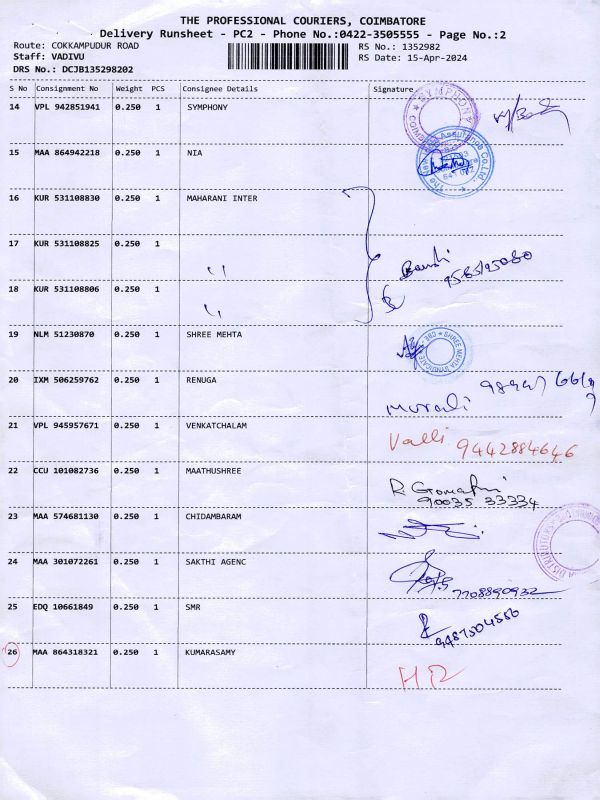 THE PROFESSIONAL COURIERS, COIMBATORE
Delivery Runsheet - PC2 - Phone No.:0422-3505555 - Page No.:2
Route: COKKAMPUDUR ROAD
RS No.: 1352982
Staff: VADIVU
RS Date: 15-Apr-2024
DRS No.: DCJB135298202
S No Consignment No Weight PCS Consignee Details Signature
14 VPL 942851941 0.250 1 SYMPHONY
SYMPHONY
15 MAA 864942218 0.250 1 NIA
Assurance Co.Ltd
16 KUR 531108830 0.250 1 MAHARANI INTER
17 KUR 531108825 0.250 1 〃
18 KUR 531108806 0.250 1 〃
19 NLM 51230870 0.250 1 SHREE MEHTA
SHREE MEHTA SYNDICATE
20 IXM 506259762 0.250 1 RENUGA
Murali
21 VPL 945957671 0.250 1 VENKATCHALAM
Valli 9442884646
22 CCU 101082736 0.250 1 MAATHUSHREE
R Gomathi
90035 33334
23 MAA 574681130 0.250 1 CHIDAMBARAM
24 MAA 301072261 0.250 1 SAKTHI AGENC
7708890932
25 EDQ 10661849 0.250 1 SMR
9487504556
26 MAA 864318321 0.250 1 KUMARASAMY